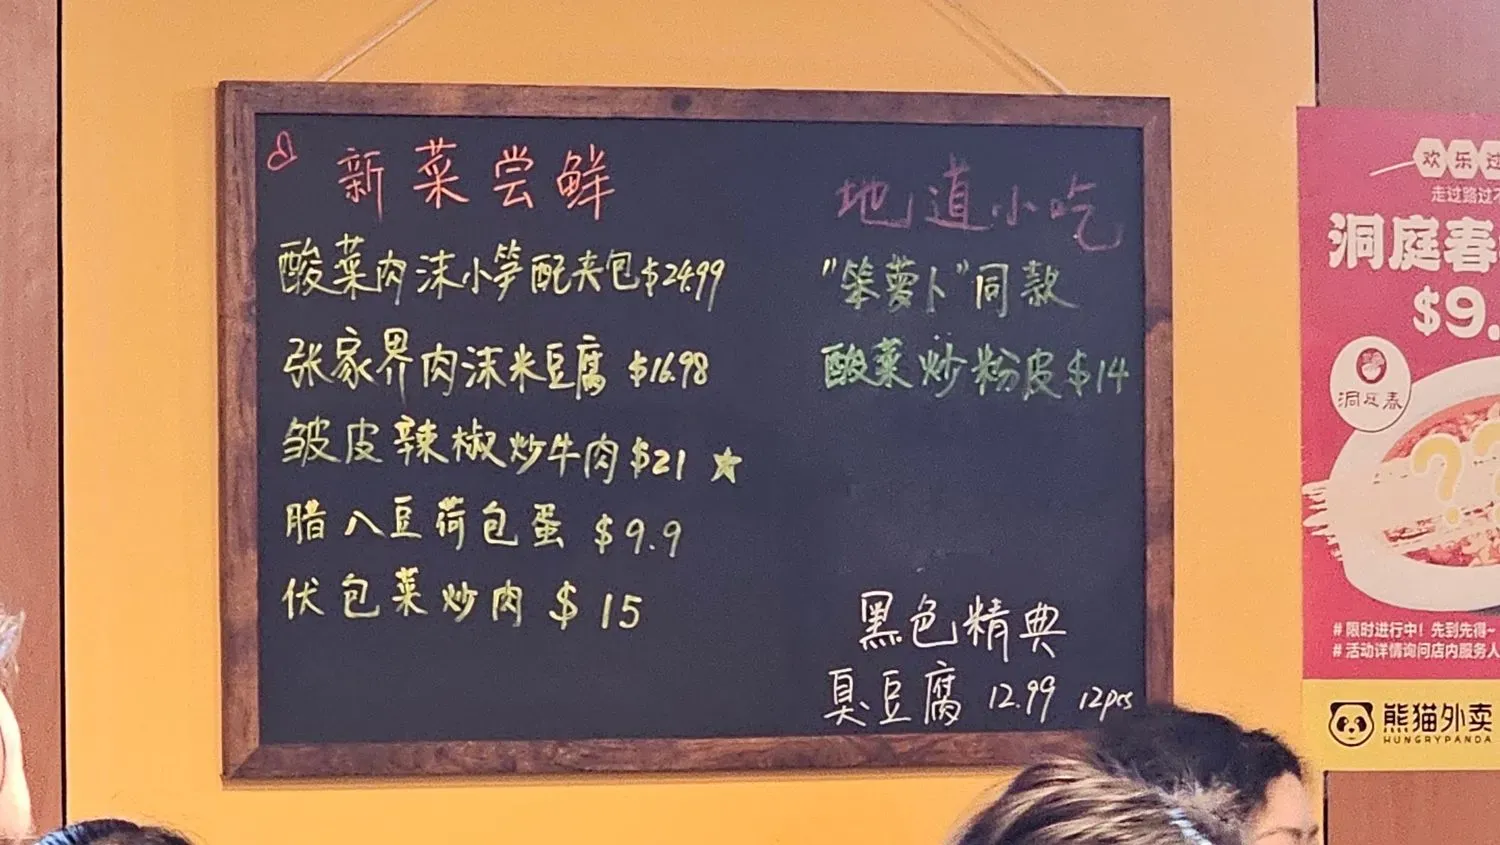 新菜尝鲜
酸菜肉沫小笋配夹包$24.99
张家界肉沫米豆腐 $16.98
皱皮辣椒炒牛肉$21
腊八豆荷包蛋 $9.9
伏包菜炒肉 $15
地道小吃
"笨萝卜"同款
酸菜炒粉皮$14
黑色精典
臭豆腐 12.99 12pcs
欢乐过
走过路过不
洞庭春
$9.
洞庭春
??
#限时进行中！先到先得~
#活动详情询问店内服务人
熊猫外卖
HUNGRYPANDA